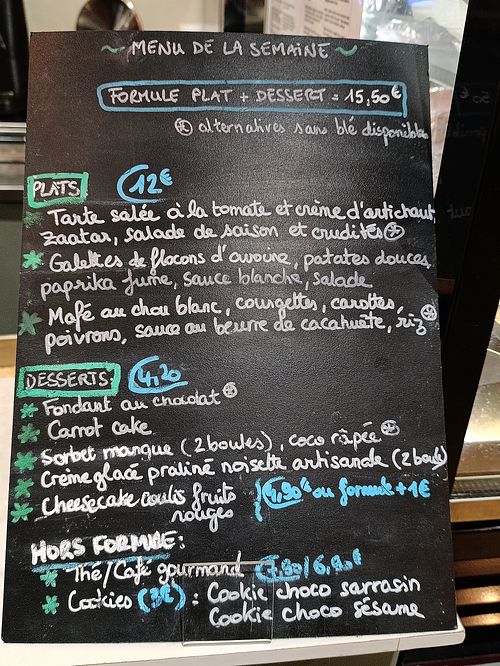 ~ MENU DE LA SEMAINE ~
FORMULE PLAT + DESSERT = 15,50€
alternatives sans blé disponibles
PLATS 12€
* Tarte salée à la tomate et crème d'artichaut,
zaatar, salade de saison et crudités
* Galettes de flocons d'avoine, patates douces,
paprika fumé, sauce blanche, salade
* Mafé au chou blanc, courgettes, carottes,
poivrons, sauce au beurre de cacahuète, riz
DESSERTS: 4,20
* Fondant au chocolat
* Carrot cake
* Sorbet mangue (2 boules), coco râpée
* Crème glacé praliné noisette artisanale (2 boules)
* Cheesecake coulis fruits
rouges
4,90€ ou formule +1€
HORS FORMULE:
* Thé/Café gourmand 7,90/6,90€
* Cookies (3€) : Cookie choco sarrasin
Cookie choco sésame